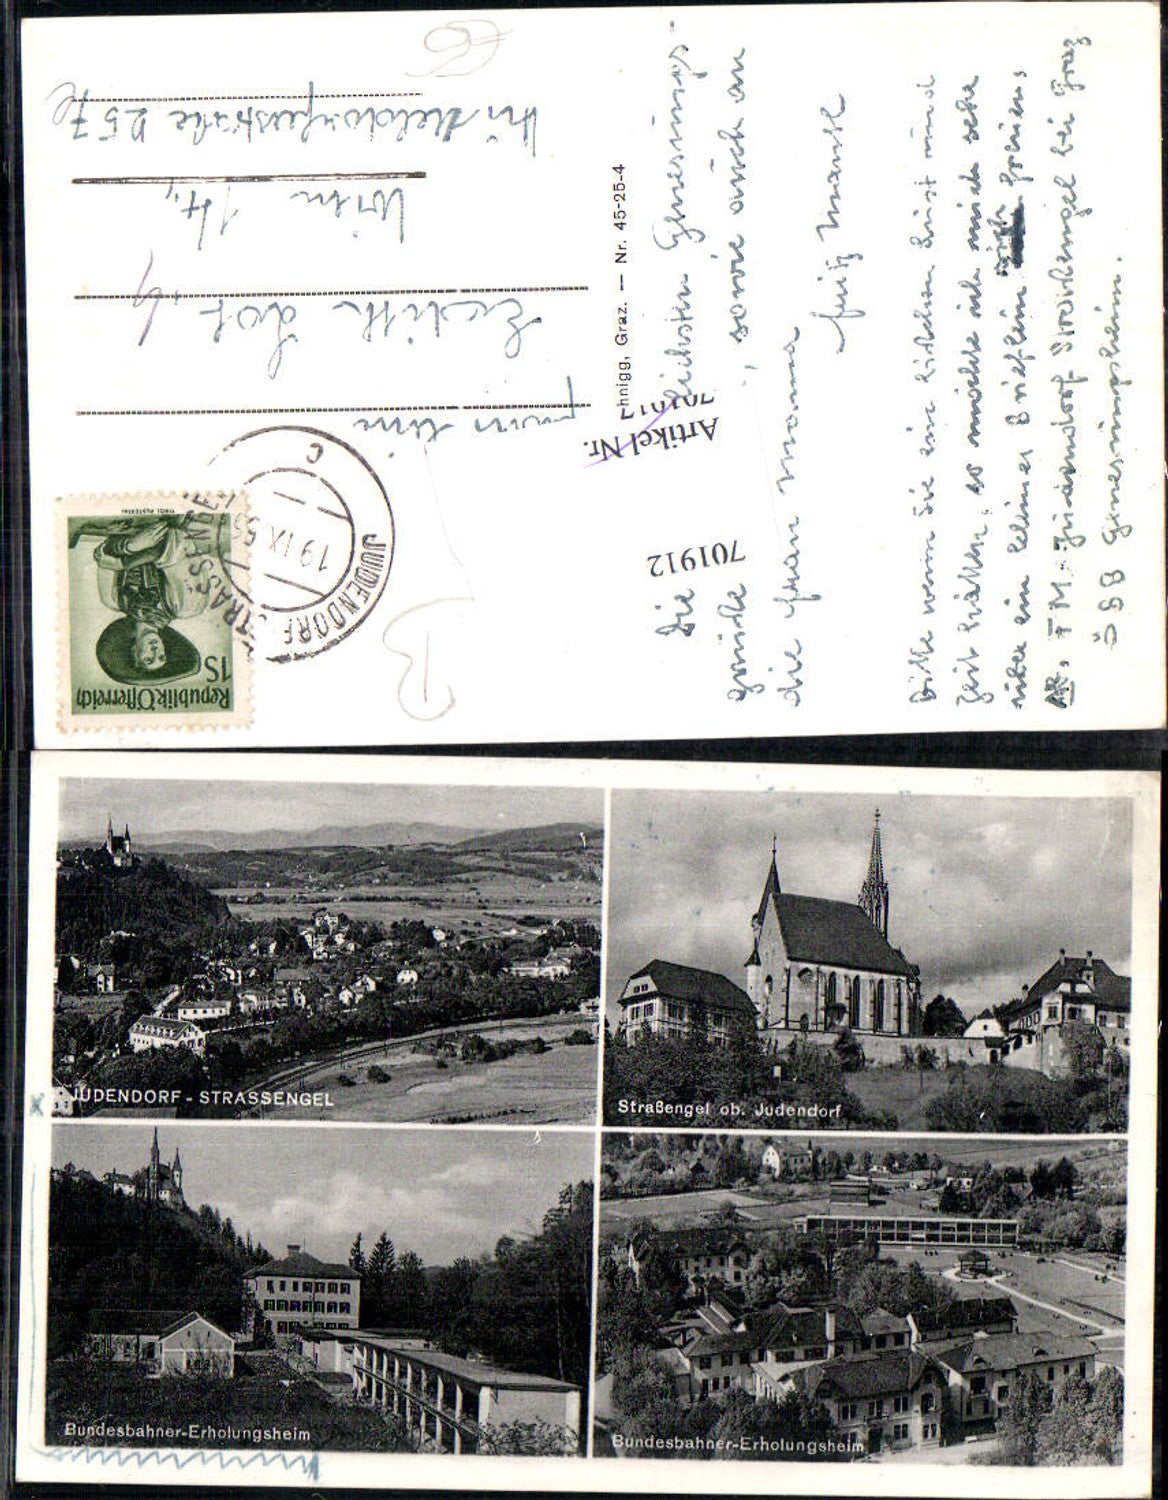 Die herzlichsten Genesungs-
grüße, sowie auch an
die Frau Mama
Fritz
Bitte wenn Sie ein bisschen Lust und
Zeit hätten, so möchte ich mich sehr
über ein kleines Brieflein freuen.
Judendorf Strassengel bei Graz
ÖBB Genesungsheim.
Fräulein
Edith
Wien 14,
Hütteldorferstraße 257c
hnigg, Graz. — Nr. 45-25-4
Artikel Nr.
701912
701912
Republik Österreich
1S
TIROL PUSTERTAL
JUDENDORF-STRASSENGEL
19 IX 55
C
JUDENDORF - STRASSENGEL
Straßengel ob. Judendorf
Bundesbahner-Erholungsheim
Bundesbahner-Erholungsheim